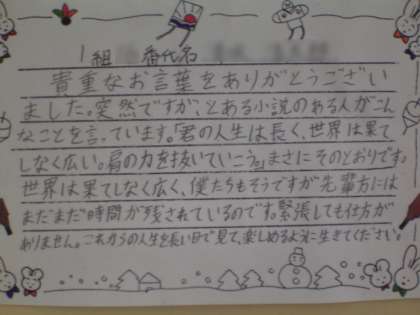 1組 番代名
貴重なお言葉をありがとうござい
ました。突然ですが、とある小説のある人がこん
なことを言っています。「君の人生は長く、世界は果て
しなく広い。肩の力を抜いていこう。」まさにそのとおりです。
世界は果てしなく広く、僕たちもそうですが先輩方には
まだまだ時間が残されているのです。緊張しても仕方が
ありません。これからの人生を長い目で見て、楽しめるように生きてください。